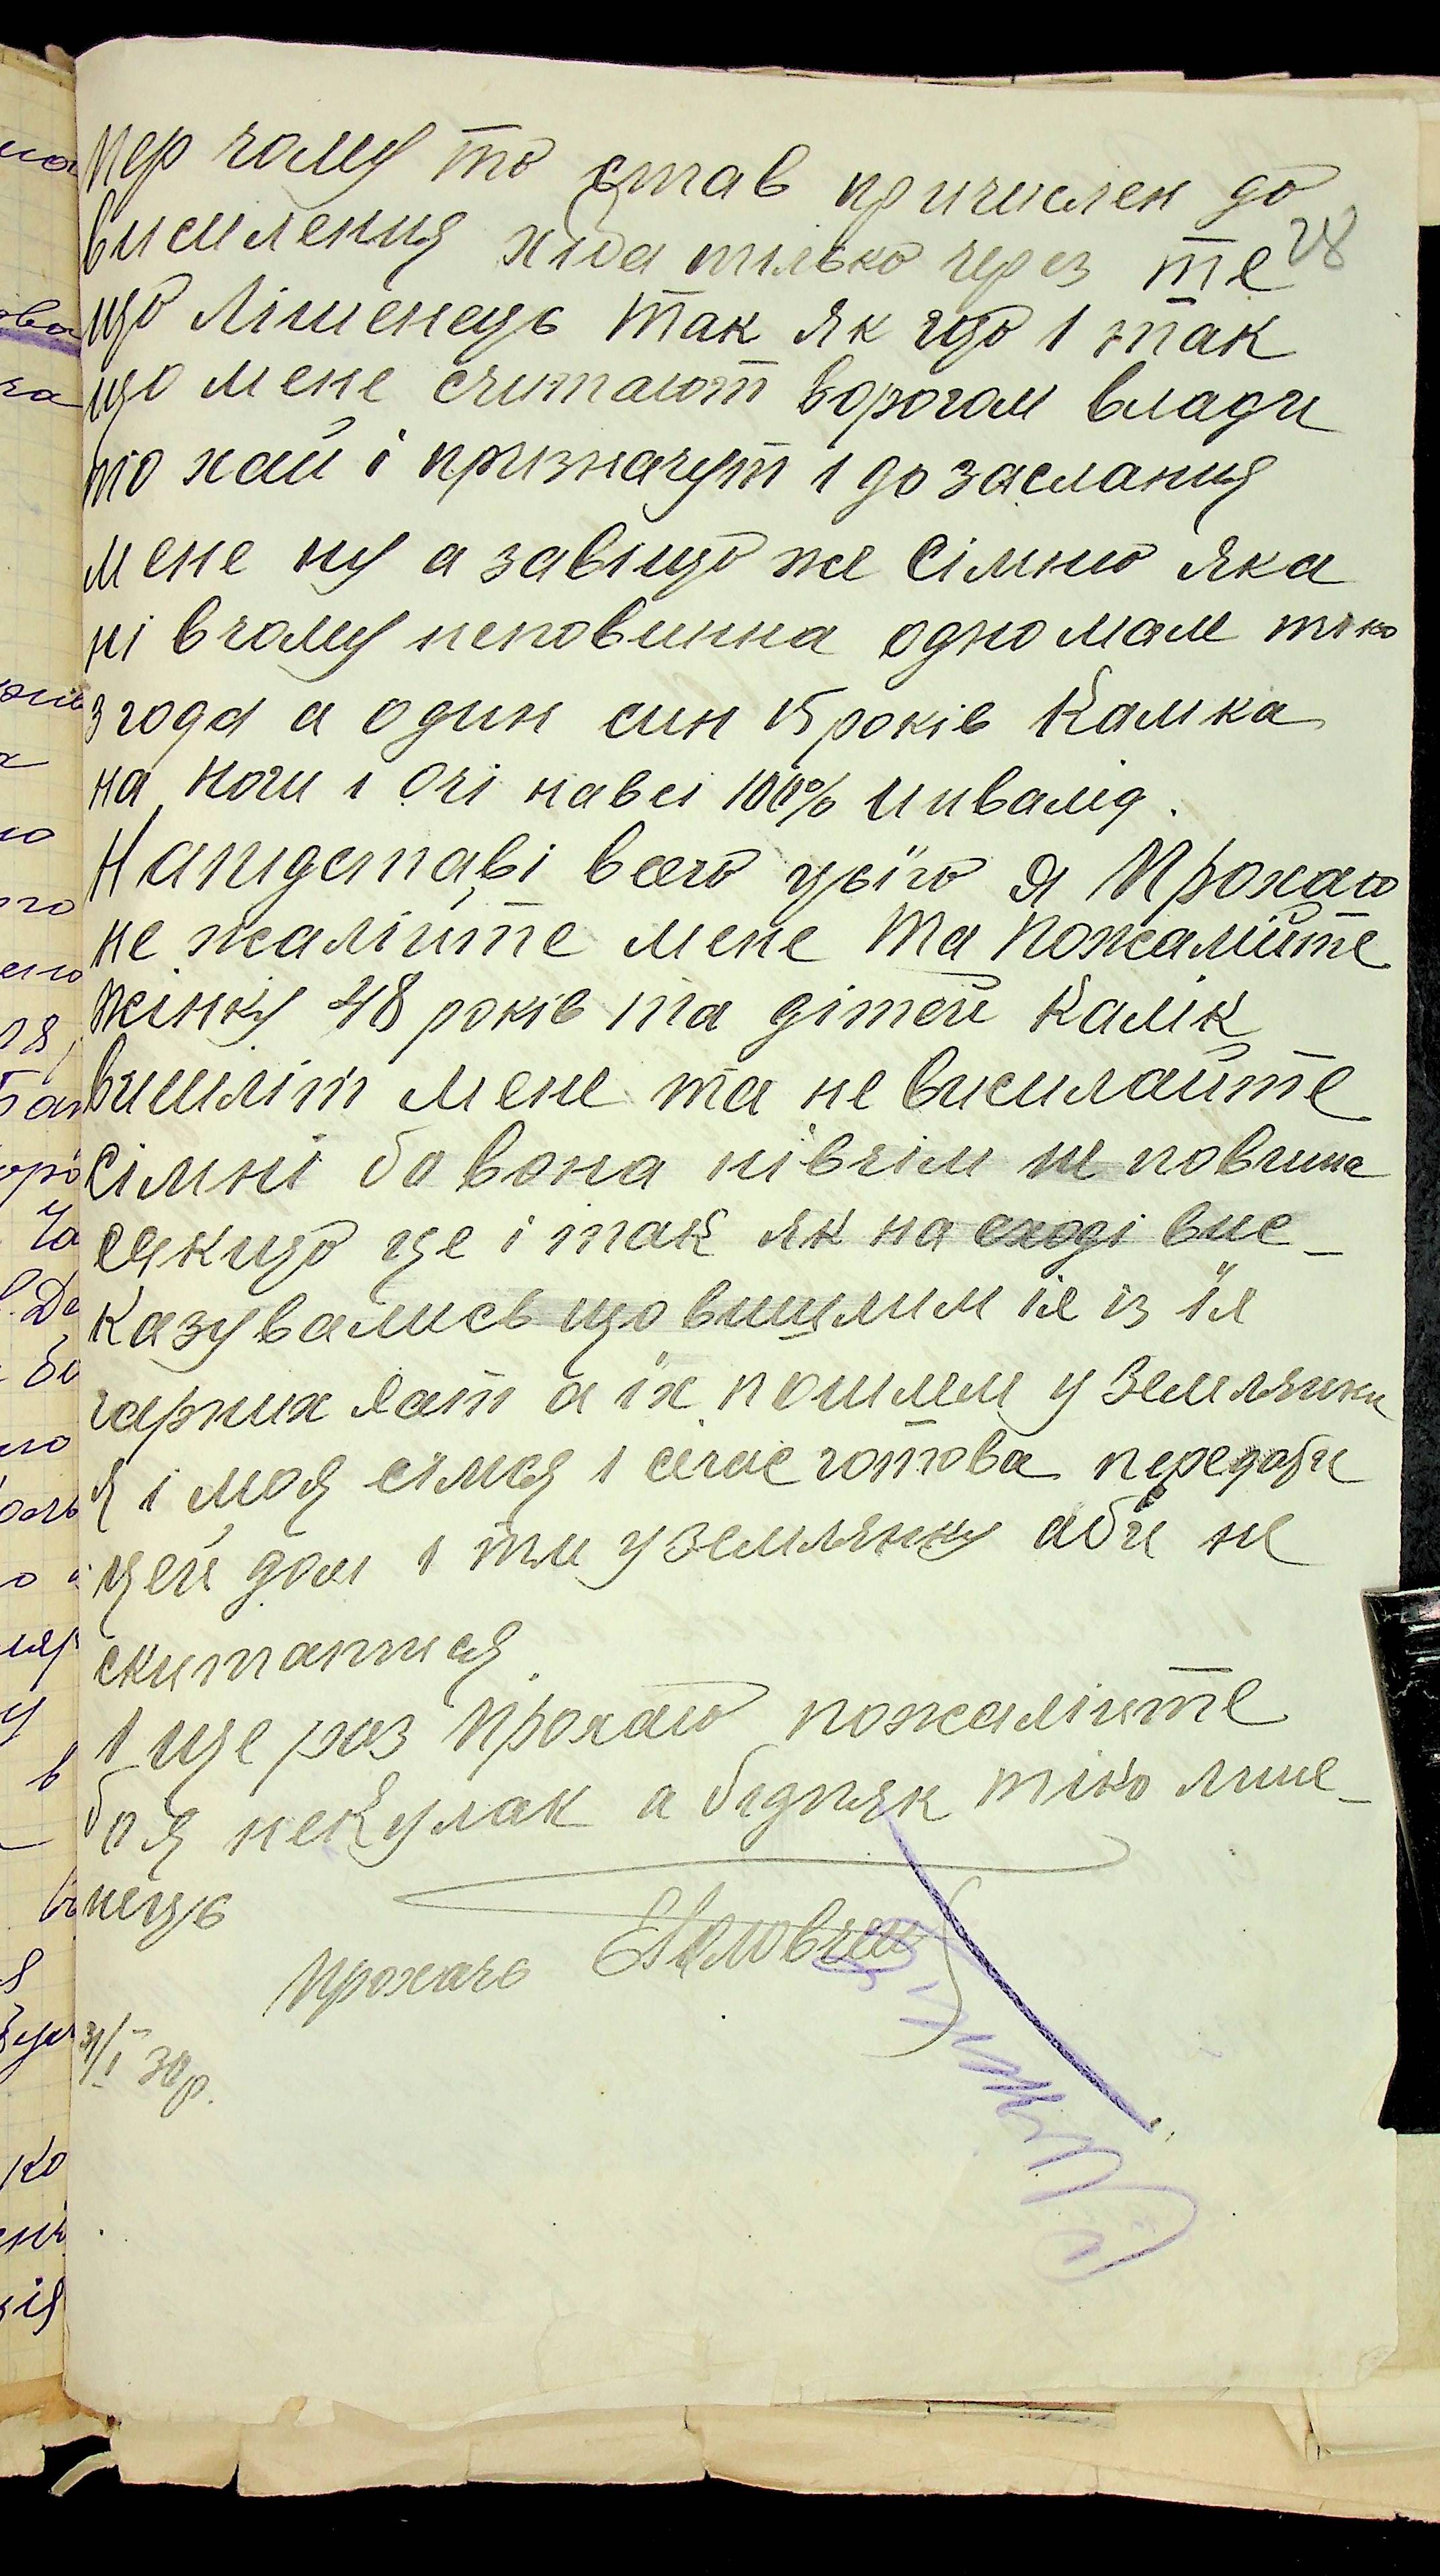 пер чому то став причислен до
висилення хіба тілько через те 28
що Лішенець так як що і так
що мене считают ворогом влади
то хай і призначут і до заслання
мене ну а завіщо же Сімню яка
ні в чому неповинна одно мале тіко
3 года а один син 15 років Калика
на ноги і очі навсі 100% инвалід.
Напідставі всего цьіго я Прохаю
не жалійте мене та пожалійте
жінку 48 років та дітей Калік
вишліт мене та не висилайте
Сімні бо вона нівчім не повинна
еякщо це і так як на сході вис-
казувались що вишлим іх із їх
гарних хат а їх пошлем у Землянки
Я і моя сімя і січас готова передати
цей дом і ти у землянку аби не
скитатися.
І ще раз Прохаю пожалійте
бо я некулак а бідняк тіко лише-
нець
Прохачь
31/I 30р.